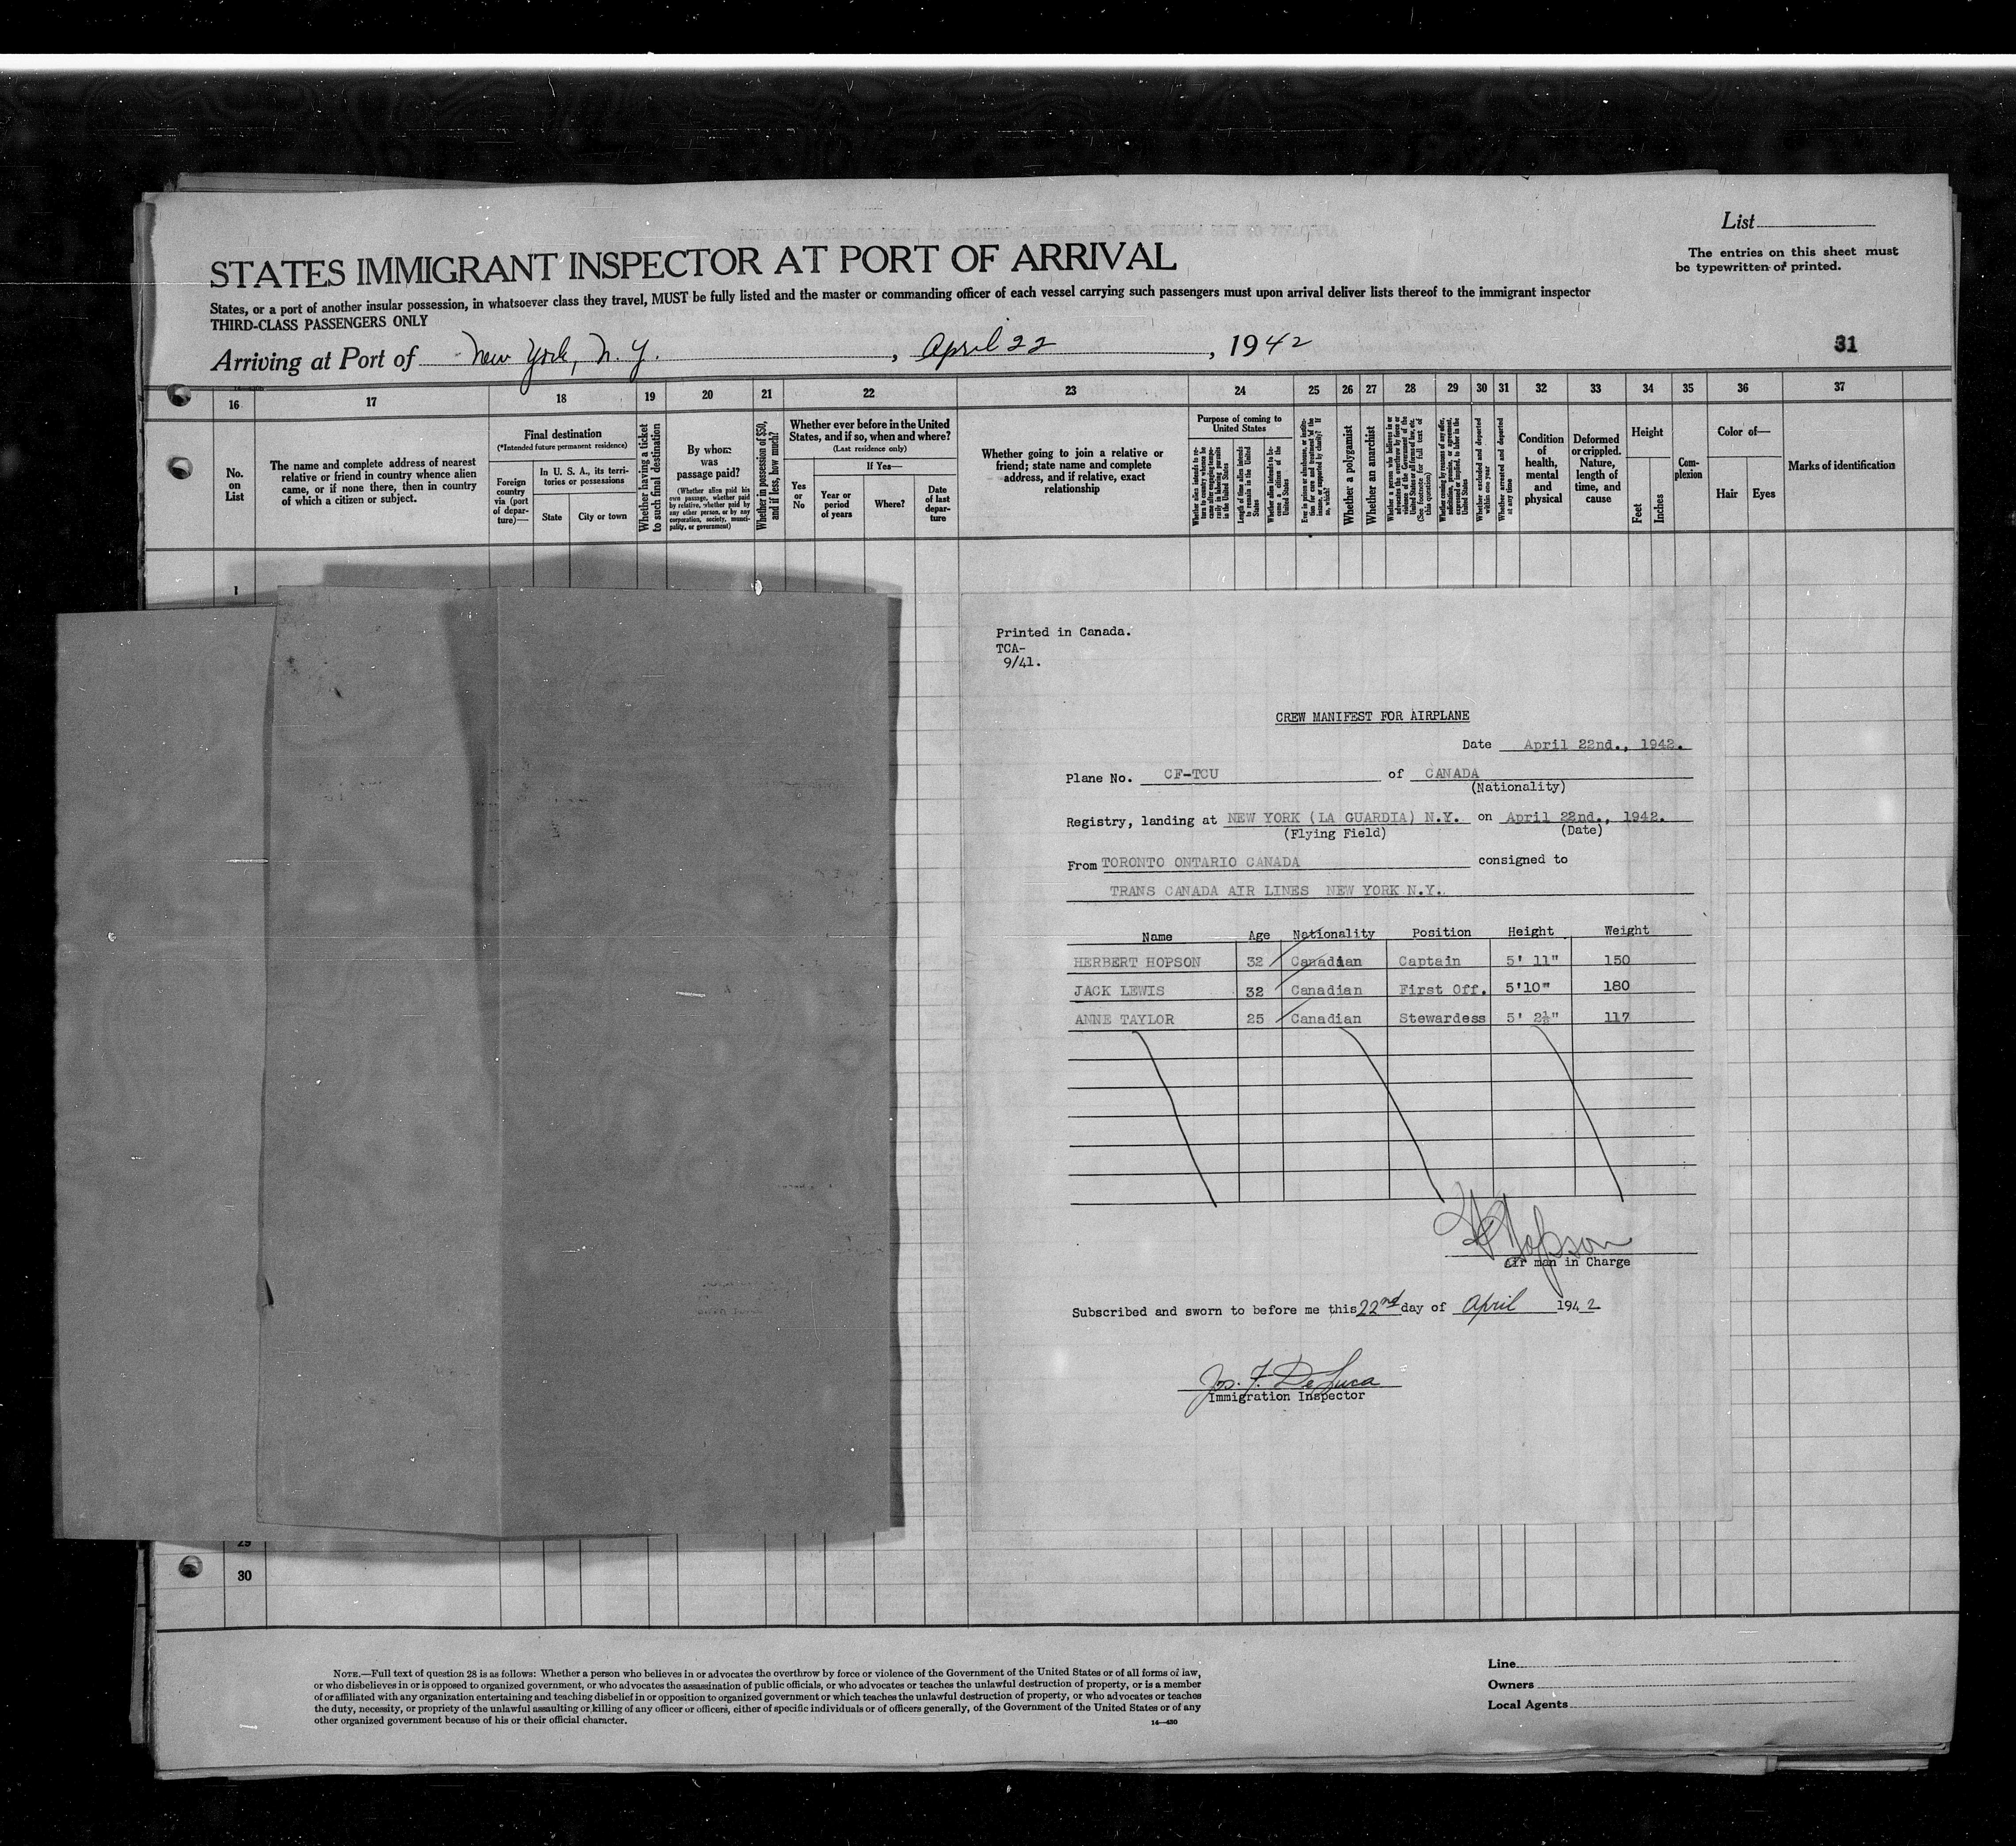 List
The entries on this sheet must
be typewritten or printed.
STATES IMMIGRANT INSPECTOR AT PORT OF ARRIVAL
States, or a port of another insular possession, in whatsoever class they travel, MUST be fully listed and the master or commanding officer of each vessel carrying such passengers must upon arrival deliver lists thereof to the immigrant inspector
THIRD-CLASS PASSENGERS ONLY
Arriving at Port of New York, N. Y., April 22, 1942
31
16 17 18 19 20 21 22 23 24 25 26 27 28 29 30 31 32 33 34 35 36 37
No.
on
List
The name and complete address of nearest
relative or friend in country whence alien
came, or if none there, then in country
of which a citizen or subject.
Final destination
(*Intended future permanent residence)
Foreign
country
via (port
of depar-
ture)—
In U. S. A., its terri-
tories or possessions
State
City or town
Whether having a ticket
to such final destination
By whom
was
passage paid?
(Whether alien paid his
own passage, whether paid
by relative, whether paid by
any other person, or by any
corporation, society, munici-
pality, or government)
Whether in possession of $50,
and if less, how much?
Whether ever before in the United
States, and if so, when and where?
(Last residence only)
Yes
or
No
If Yes—
Year or
period
of years
Where?
Date
of last
depar-
ture
Whether going to join a relative or
friend; state name and complete
address, and if relative, exact
relationship
Purpose of coming to
United States
Length of time alien intends
to remain in the United
States
Whether alien intends to be-
come a citizen of the
United States
Whether a polygamist
Whether an anarchist
Whether excluded and deported
within one year
Whether arrested and deported
at any time
Condition
of
health,
mental
and
physical
Deformed
or crippled.
Nature,
length of
time, and
cause
Height
Feet
Inches
Com-
plexion
Color of—
Hair
Eyes
Marks of identification
1
Printed in Canada.
TCA-
9/41.
CREW MANIFEST FOR AIRPLANE
Date April 22nd., 1942.
Plane No. CF-TCU of CANADA
(Nationality)
Registry, landing at NEW YORK (LA GUARDIA) N.Y. on April 22nd., 1942.
(Flying Field) (Date)
From TORONTO ONTARIO CANADA consigned to
TRANS CANADA AIR LINES NEW YORK N.Y.
Name Age Nationality Position Height Weight
HERBERT HOPSON 32 Canadian Captain 5' 11" 150
JACK LEWIS 32 Canadian First Off. 5'10" 180
ANNE TAYLOR 25 Canadian Stewardess 5' 2½" 117
H Hopson
Air man in Charge
Subscribed and sworn to before me this 22nd day of April 1942
Jos. F. De Luca
Immigration Inspector
29
30
NOTE.—Full text of question 28 is as follows: Whether a person who believes in or advocates the overthrow by force or violence of the Government of the United States or of all forms of law,
or who disbelieves in or is opposed to organized government, or who advocates the assassination of public officials, or who advocates or teaches the unlawful destruction of property, or is a member
of or affiliated with any organization entertaining and teaching disbelief in or opposition to organized government or which teaches the unlawful destruction of property, or who advocates or teaches
the duty, necessity, or propriety of the unlawful assaulting or killing of any officer or officers, either of specific individuals or of officers generally, of the Government of the United States or of any
other organized government because of his or their official character.
14—430
Line
Owners
Local Agents